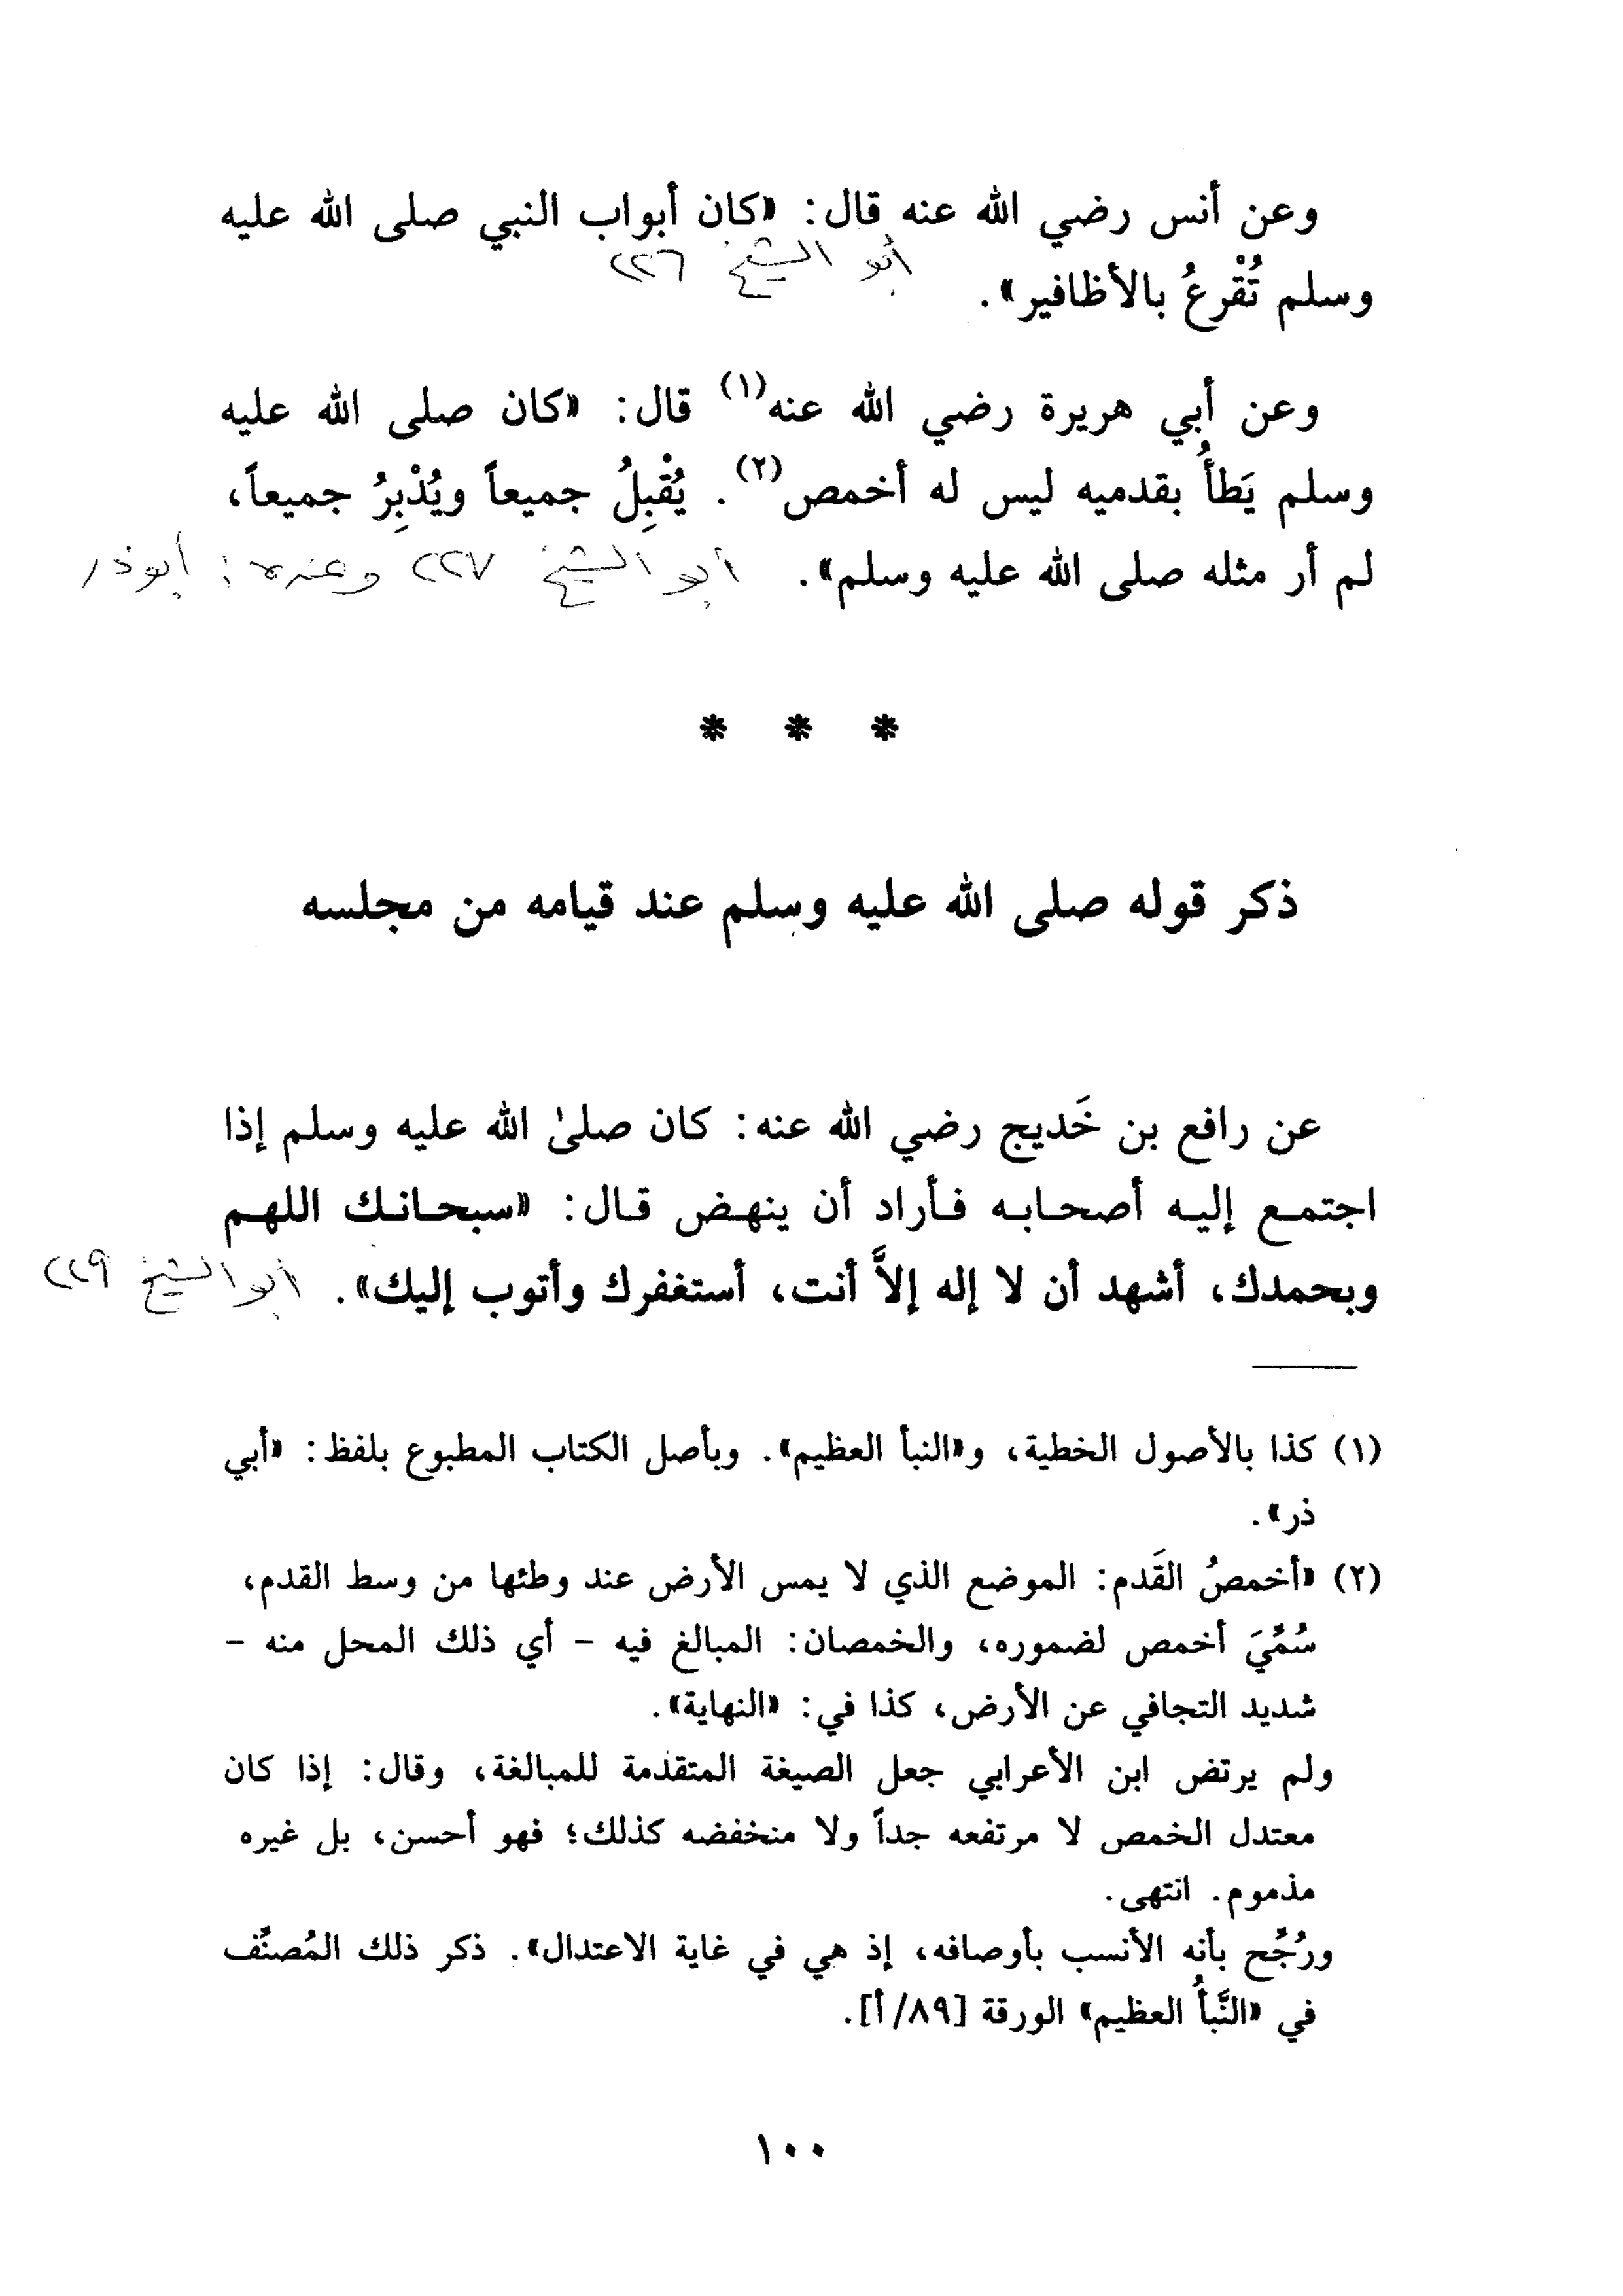 وعن أنس رضي الله عنه قال: «كان أبواب النبي صلى الله عليه
أبو الشيخ ٢٢٦
وسلم تُقْرعُ بالأظافير».
وعن أبي هريرة رضي الله عنه(١) قال: «كان صلى الله عليه
وسلم يَطأُ بقدميه ليس له أخمص(٢). يُقْبِلُ جميعاً ويُدْبِرُ جميعاً،
لم أر مثله صلى الله عليه وسلم». أبو الشيخ ٢٢٧ وعنده: أبوذر
* * *
ذكر قوله صلى الله عليه وسلم عند قيامه من مجلسه
عن رافع بن خَديج رضي الله عنه: كان صلىٰ الله عليه وسلم إذا
اجتمع إليه أصحابه فأراد أن ينهض قال: «سبحانك اللهم
وبحمدك، أشهد أن لا إله إلاَّ أنت، أستغفرك وأتوب إليك». أبو الشيخ ٢٢٩
(١) كذا بالأصول الخطية، و«النبأ العظيم». وبأصل الكتاب المطبوع بلفظ: «أبي
ذر».
(٢) «أخمصُ القَدم: الموضع الذي لا يمس الأرض عند وطئها من وسط القدم،
سُمِّيَ أخمص لضموره، والخمصان: المبالغ فيه – أي ذلك المحل منه –
شديد التجافي عن الأرض، كذا في: «النهاية».
ولم يرتض ابن الأعرابي جعل الصيغة المتقدمة للمبالغة، وقال: إذا كان
معتدل الخمص لا مرتفعه جداً ولا منخفضه كذلك؛ فهو أحسن، بل غيره
مذموم. انتهى.
ورُجِّح بأنه الأنسب بأوصافه، إذ هي في غاية الاعتدال». ذكر ذلك المُصنِّف
في «النَّبأُ العظيم» الورقة [٨٩/أ].
١٠٠